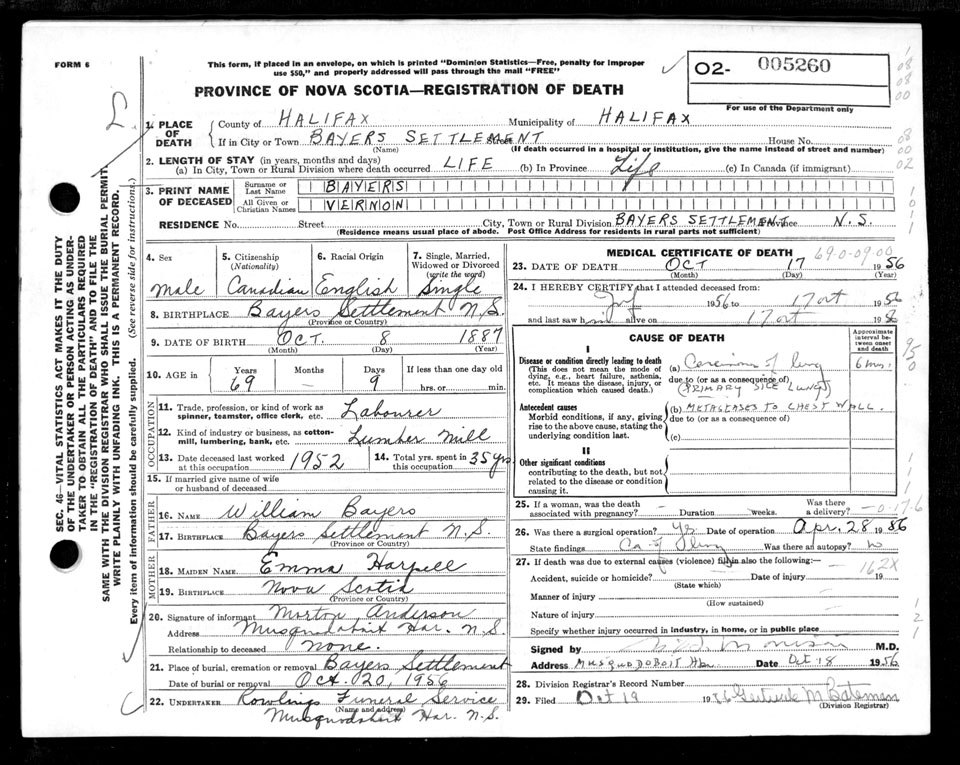 FORM 6
This form, if placed in an envelope, on which is printed "Dominion Statistics—Free, penalty for improper
use $50," and properly addressed will pass through the mail "FREE"
O2- 005260
For use of the Department only
PROVINCE OF NOVA SCOTIA—REGISTRATION OF DEATH
1. PLACE OF DEATH
County of HALIFAX Municipality of HALIFAX
If in City or Town BAYERS SETTLEMENT Street House No.
(Name) (If death occurred in a hospital or institution, give the name instead of street and number)
2. LENGTH OF STAY (in years, months and days)
(a) In City, Town or Rural Division where death occurred LIFE (b) In Province Life (c) In Canada (if immigrant)
3. PRINT NAME OF DECEASED
Surname or Last Name BAYERS
All Given or Christian Names VERNON
RESIDENCE No. Street City, Town or Rural Division BAYERS SETTLEMENT Province N.S.
(Residence means usual place of abode. Post Office Address for residents in rural parts not sufficient)
4. Sex
Male
5. Citizenship (Nationality)
Canadian
6. Racial Origin
English
7. Single, Married, Widowed or Divorced (write the word)
Single
8. BIRTHPLACE Bayers Settlement N.S.
(Province or Country)
9. DATE OF BIRTH OCT. 8 1887
(Month) (Day) (Year)
10. AGE in Years Months Days If less than one day old
69 — 9 hrs. or min.
OCCUPATION
11. Trade, profession, or kind of work as spinner, teamster, office clerk, etc. Labourer
12. Kind of industry or business, as cotton-mill, lumbering, bank, etc. Lumber Mill
13. Date deceased last worked at this occupation 1952
14. Total yrs. spent in this occupation 35 yrs
15. If married give name of wife or husband of deceased
FATHER
16. NAME William Bayers
17. BIRTHPLACE Bayers Settlement N.S.
(Province or Country)
MOTHER
18. MAIDEN NAME Emma Harpell
19. BIRTHPLACE Nova Scotia
(Province or Country)
20. Signature of informant Morton Anderson
Address Musquodoboit Har. N.S.
Relationship to deceased none.
21. Place of burial, cremation or removal Bayers Settlement
Date of burial or removal Oct. 20, 1956
22. UNDERTAKER Rowlings Funeral Service
(Name and address)
Musquodoboit Har. N.S.
MEDICAL CERTIFICATE OF DEATH
69-0-09-00
23. DATE OF DEATH OCT 17 1956
(Month) (Day) (Year)
24. I HEREBY CERTIFY that I attended deceased from:
1956 to 17 Oct 1956
and last saw him alive on 17 Oct 1956
CAUSE OF DEATH
Approximate interval between onset and death
I
Disease or condition directly leading to death
(This does not mean the mode of dying, e.g., heart failure, asthenia, etc. It means the disease, injury, or complication which caused death.)
(a) Carcinoma of lung 6 mos.
due to (or as a consequence of)
(PRIMARY SITE LUNG)
Antecedent causes
Morbid conditions, if any, giving rise to the above cause, stating the underlying condition last.
(b) METASTASES TO CHEST WALL.
due to (or as a consequence of)
(c)
II
Other significant conditions
contributing to the death, but not related to the disease or condition causing it.
25. If a woman, was the death associated with pregnancy? — Duration weeks. Was there a delivery? —
26. Was there a surgical operation? Yes Date of operation Apr. 28 1956
State findings Ca of lung Was there an autopsy? No
27. If death was due to external causes (violence) fill in also the following:
162X
Accident, suicide or homicide? Date of injury 19
(State which)
Manner of injury
(How sustained)
Nature of injury
Specify whether injury occurred in industry, in home, or in public place
Signed by M.D.
Address MUSQUODOBOIT Hbr Date Oct 18 1956
28. Division Registrar's Record Number
29. Filed Oct 19 1956 Gertrude M Bateman
(Division Registrar)
SEC. 46—VITAL STATISTICS ACT MAKES IT THE DUTY
OF THE UNDERTAKER OR PERSON ACTING AS UNDER-
TAKER TO OBTAIN ALL THE PARTICULARS REQUIRED
IN THE "REGISTRATION OF DEATH" AND TO FILE THE
SAME WITH THE DIVISION REGISTRAR WHO SHALL ISSUE THE BURIAL PERMIT.
WRITE PLAINLY WITH UNFADING INK. THIS IS A PERMANENT RECORD.
Every item of information should be carefully supplied. (See reverse side for instructions.)